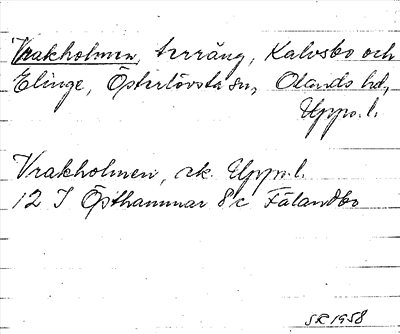 Vrakholmen, terräng, Kalvsbo och
Elinge, Österlövsta sn, Olands hd,
Upps. l.
Vrakholmen, ek. Upps. l.
12 I Östhammar 8 c Fälandbo
SR 1958